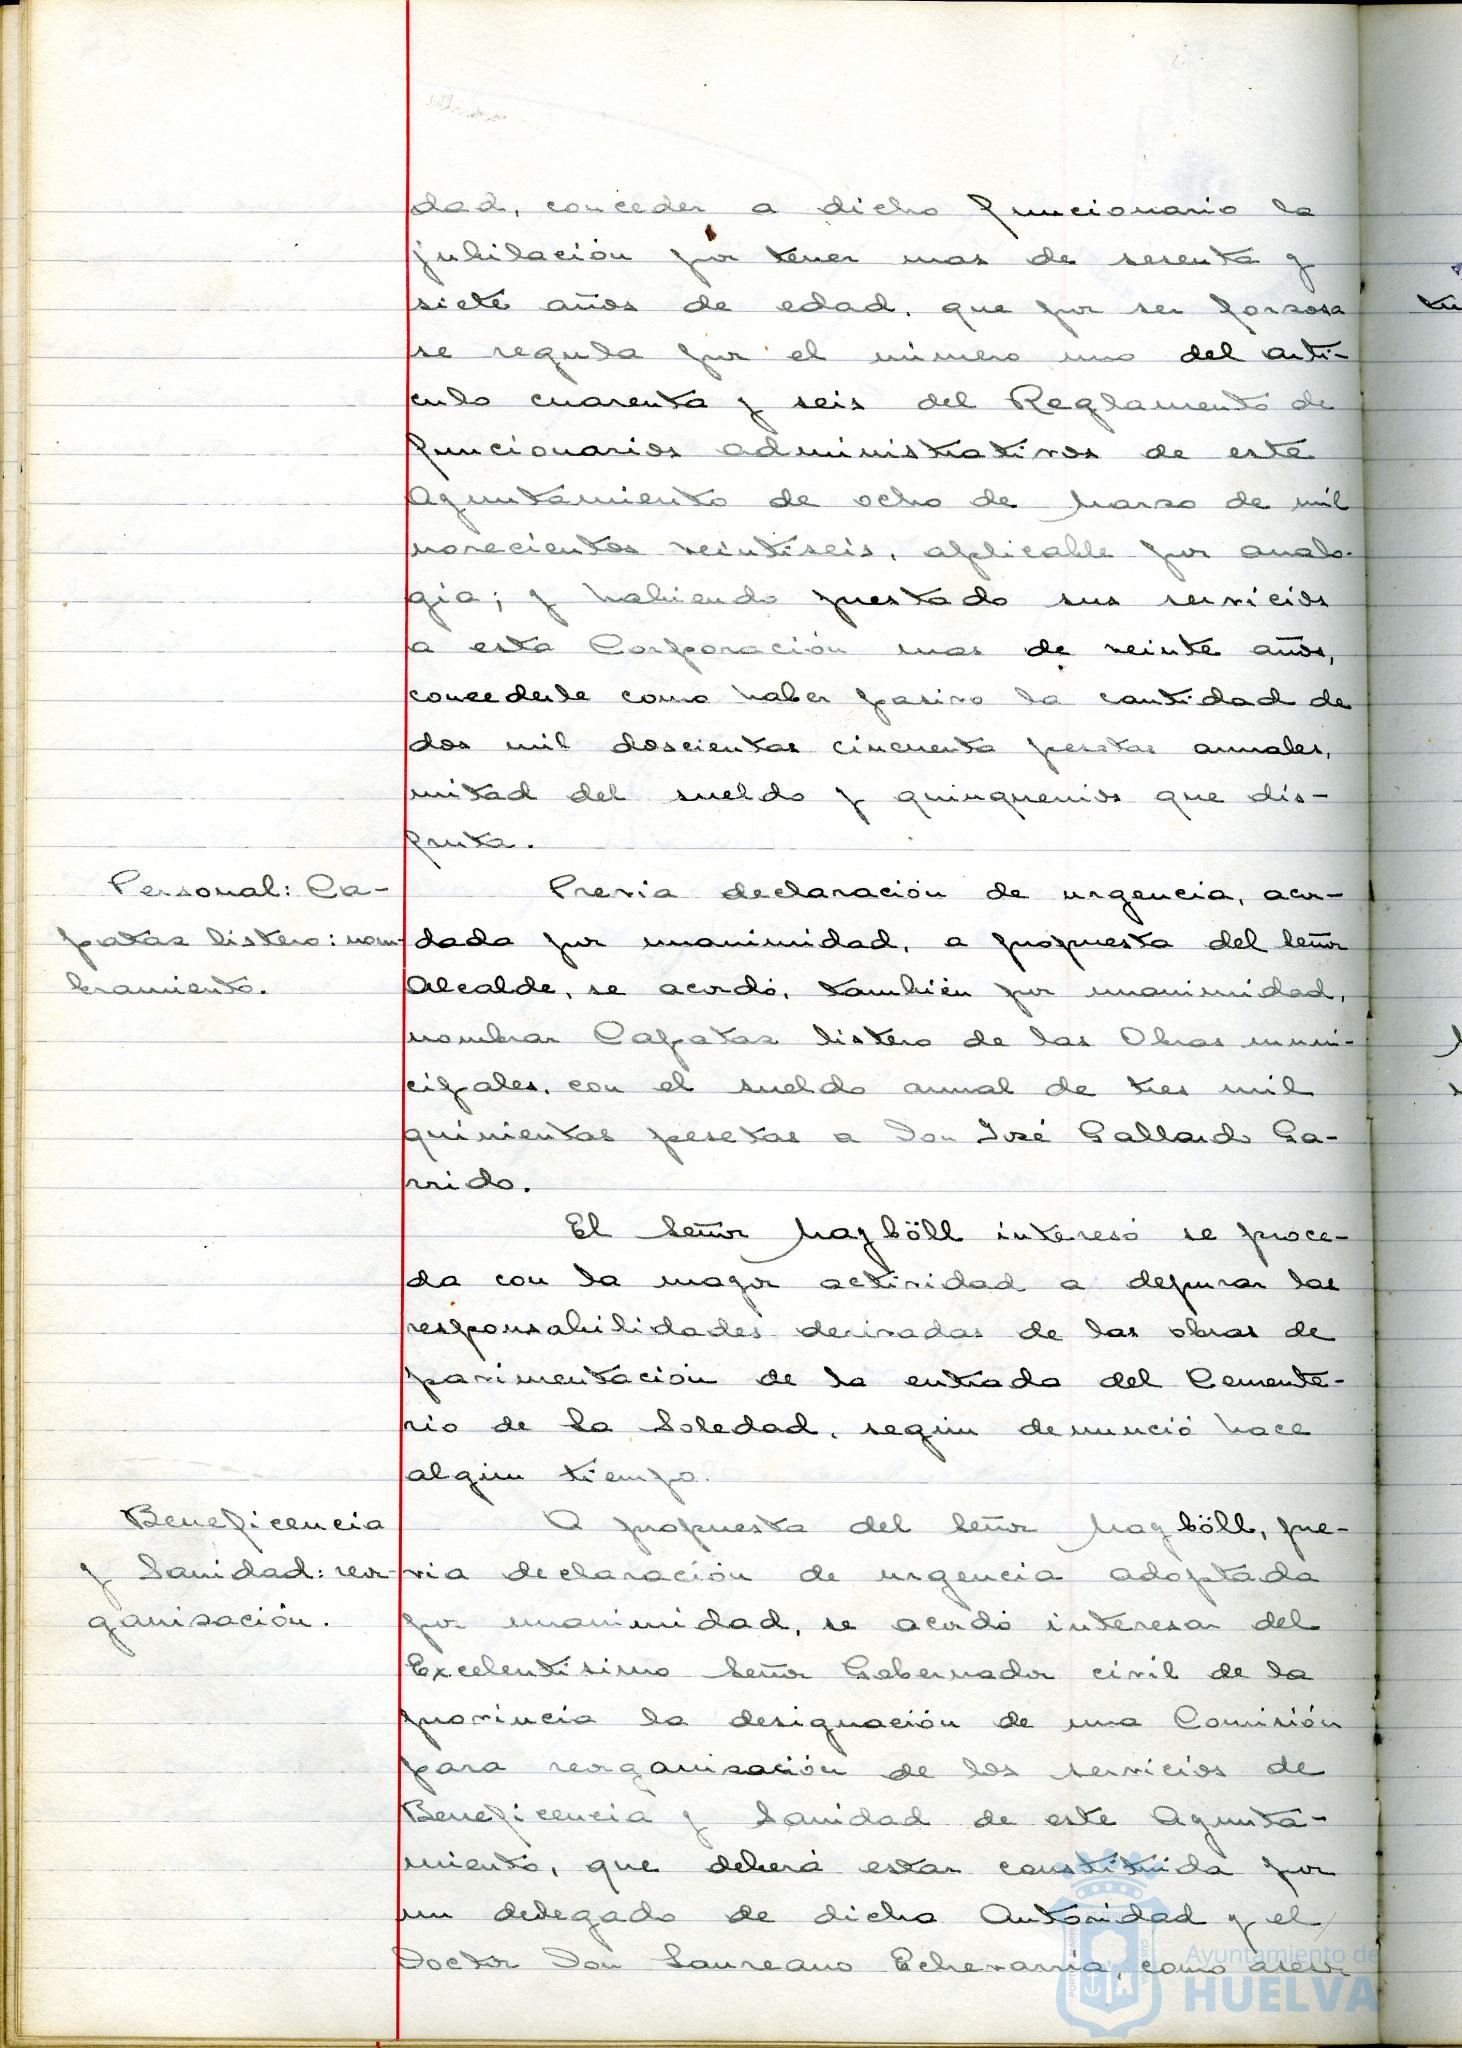 dad, conceder a dicho funcionario la
jubilación por tener mas de sesenta y
siete años de edad, que por ser forzosa
se regula por el número uno del artí-
culo cuarenta y seis del Reglamento de
funcionarios administrativos de este
Ayuntamiento de ocho de Marzo de mil
novecientos veintiseis, aplicable por analo-
gia; y habiendo prestado sus servicios
a esta Corporación mas de veinte años,
concederle como haber pasivo la cantidad de
dos mil doscientas cincuenta pesetas anuales,
mitad del sueldo y quinquenios que dis-
fruta.
Personal: Ca-
pataz listero: nom-
bramiento.
Previa declaración de urgencia, acor-
dada por unanimidad, a propuesta del Señor
Alcalde, se acordó, también por unanimidad,
nombrar Capataz listero de las Obras muni-
cipales, con el sueldo anual de tres mil
quinientas pesetas a Don José Gallardo Ga-
rrido.
El Señor Mayböll interesó se proce-
da con la mayor actividad a depurar las
responsabilidades derivadas de las obras de
pavimentación de la entrada del Cemente-
rio de La Soledad, según denunció hace
algún tiempo.
Beneficencia
y Sanidad: reor-
ganización.
A propuesta del Señor Mayböll, pre-
via declaración de urgencia adoptada
por unanimidad, se acordó interesar del
Excelentísimo Señor Gobernador civil de la
provincia la designación de una Comisión
para reorganización de los servicios de
Beneficencia y Sanidad de este Ayunta-
miento, que deberá estar constituida por
un delegado de dicha Autoridad y el
Doctor Don Laureano Echevarria, como asesor
Ayuntamiento de
HUELVA